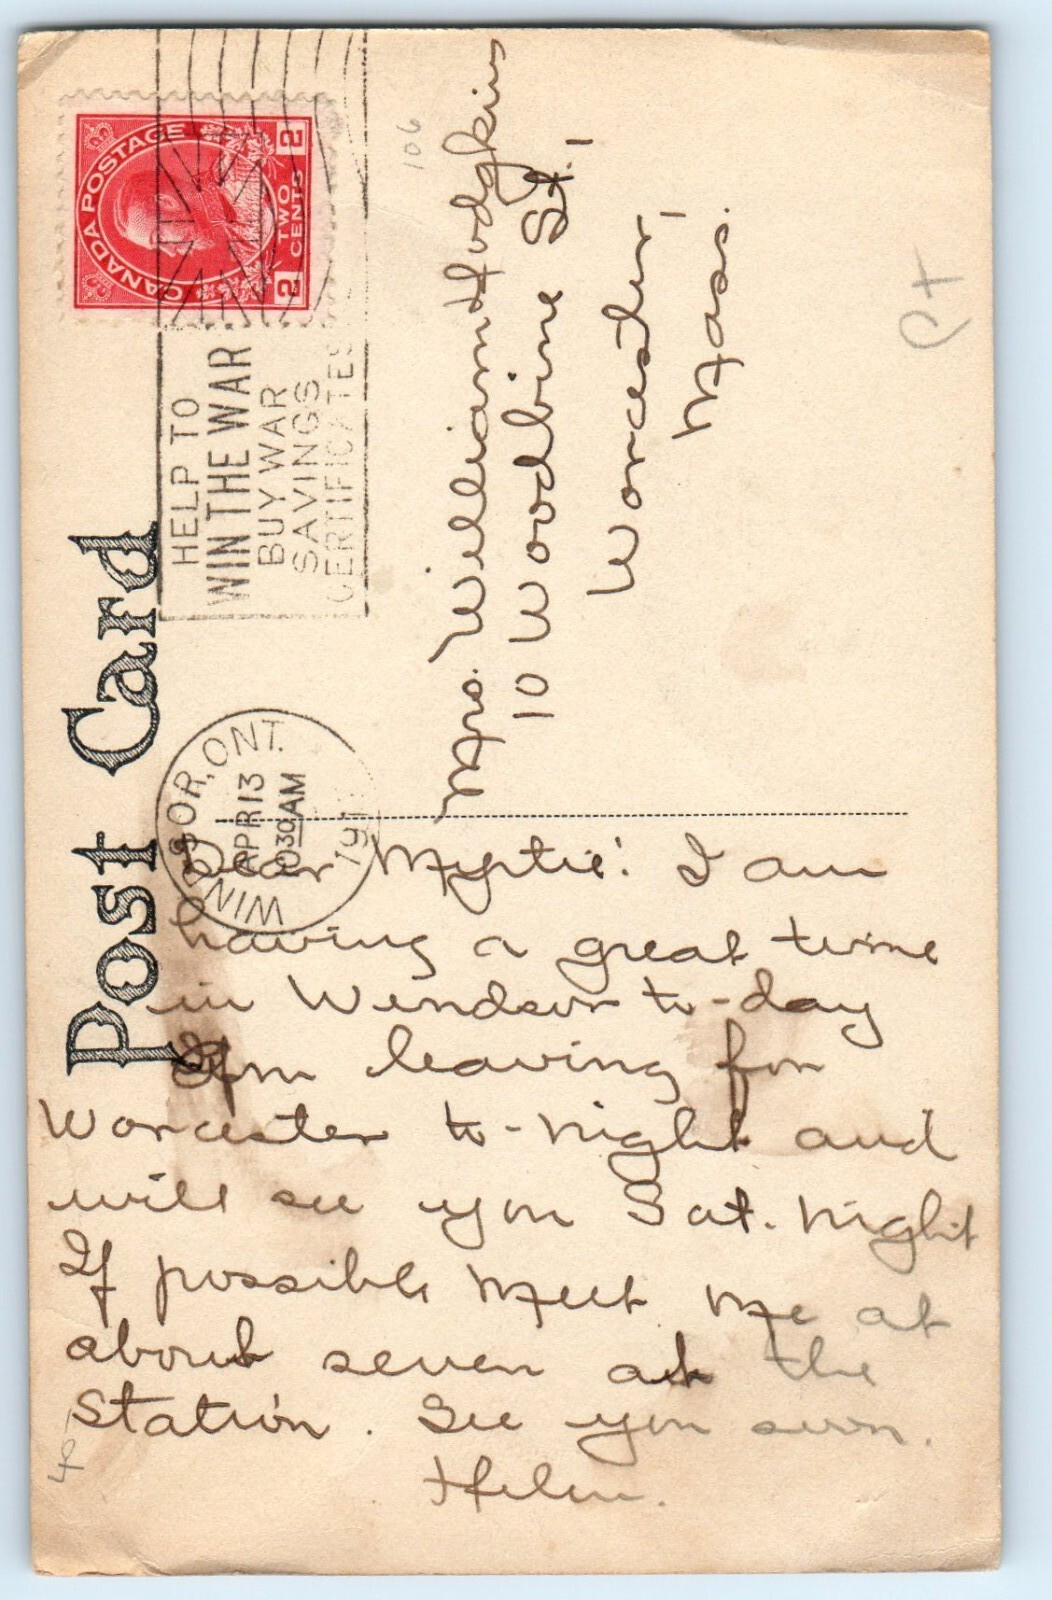 Post Card
CANADA POSTAGE
2 TWO CENTS 2
HELP TO
WIN THE WAR
BUY WAR
SAVINGS
CERTIFICATES
WINDSOR, ONT.
APR 13
30 AM
191
106
Mrs. William Hodgkins
10 Woodbine St.,
Worcester,
Mass.
Dear Myrtie: I am
having a great time
in Windsor to-day
Am leaving for
Worcester to-night and
will see you Sat. night
If possible meet me at
about seven at the
Station. See you soon.
Helen.